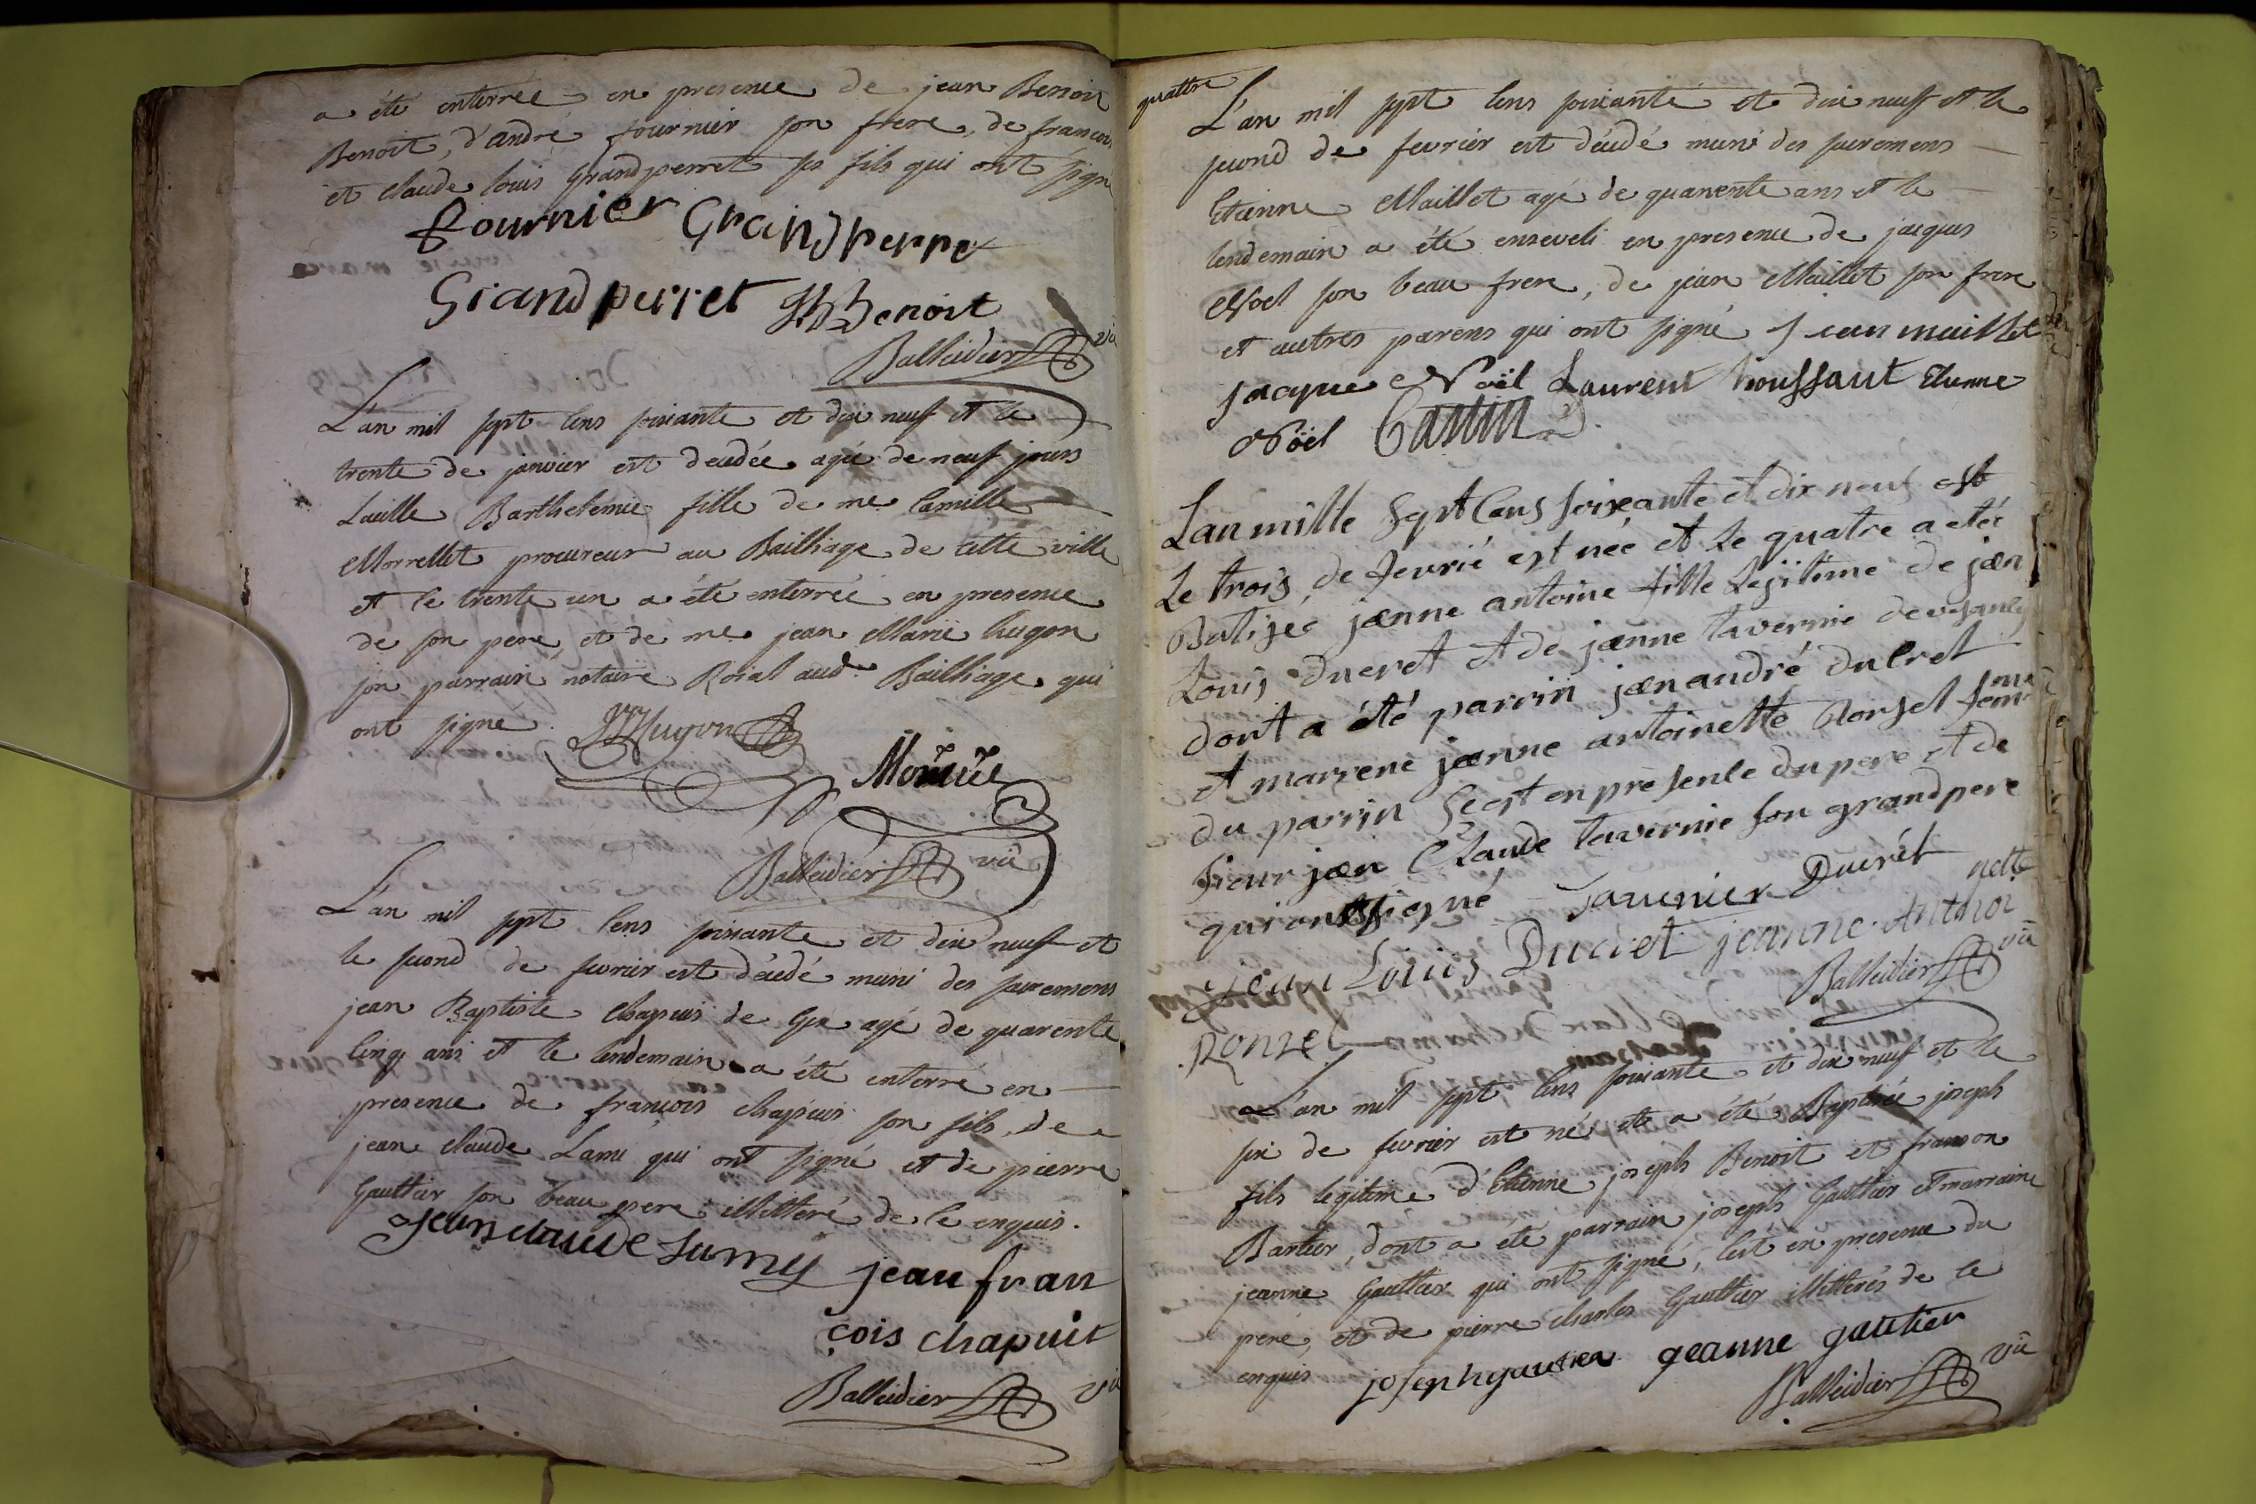 a été enterrée en presence de jean Benoit
Benoit, d'andré fournier son frere, de francois
et claude louis Grandperret ses fils qui ont signé
fournier Grandperret
Grandperret Benoit
Balleidier vic
L'an mil sept cens soixante et dix neuf et le
trente de janvier est decedée agée de neuf jours
Lucille Barthelemie fille de me Camille
Morrellet procureur au Bailliage de cette ville
et le trente un a été enterrée en presence
de son pere, et de me jean Marie hugon
son parrain notaire Roial aud. Bailliage qui
ont signé. Hugon
Balleidier vic
L'an mil sept cens soixante et dix neuf et
le second de fevrier est décédé muni des sacremens
jean Baptiste Chapuis de Gex agé de quarente
cinq ans et le lendemain a été enterré en
presence de francois chapuis son fils, de
jean claude Lami qui ont signé et de pierre
Gaultier son beau pere illitteré de ce enquis.
jean claude Lamy jean fran
çois chapuit
Balleidier vic
quattre
L'an mil sept cens soixante et dix neuf et le
second de fevrier est décédé muni des sacremens
Etienne Maillet agé de quarente ans et le
lendemain a été enseveli en presence de jacques
Noel son beau frere, de jean Maillet son frere
et autres parens qui ont signé jean maillet
jacque Noël Laurent houssaut Etienne
Noël
Lan mille Sept Cens Soixante et dix neuf est
Le trois de fevrié est née et Le quatre a etéé
Batisée jeanne antoine fille Lesitime de jean
Louis ducret et de jeanne tavernie de vesancy
dont a été parrin jean andré duCret
et marrene jeanne antoinette Ronsel femme
du parrin Cest en presence du pere et de
sieur jean Claude tavernie son grandpere
qui ont signé Tavernier Ducrét
jean Louis Ducret jeanne Anthoi
nette
Balleidier vic
Ronzel
L'an mil sept cens soixante et dix neuf et le
six de fevrier est né et a été Baptisé joseph
fils legitime d'Etienne joseph Benoit et francon
Barlier, dont a été parrain joseph Gaultier et marraine
jeanne Gaultier qui ont signé, c'est en presence du
pere, et de pierre charles Gaultier illitterés de ce
enquis joseph gautier geanne gautier
Balleidier vic